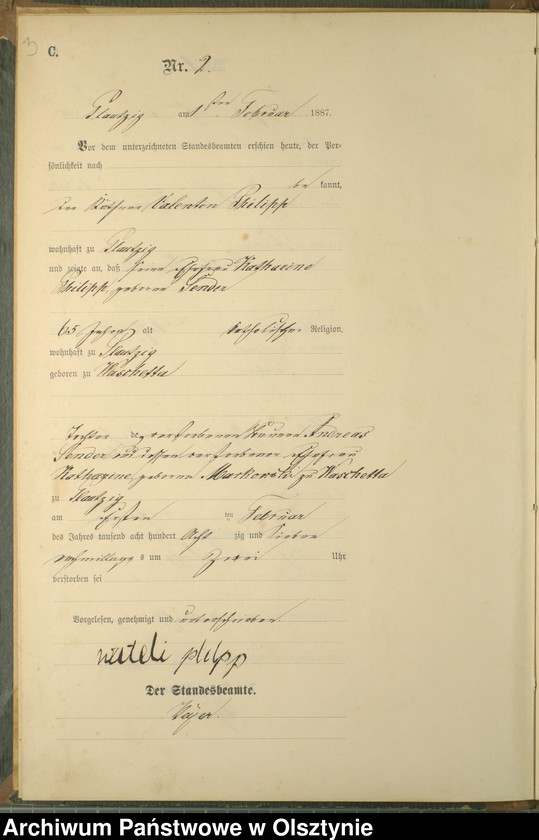 3
C.
Nr. 2.
Plautzig am 1ten Februar 1887.
Vor dem unterzeichneten Standesbeamten erschien heute, der Per-
sönlichkeit nach
be kannt,
der Käthner Valentin Philipp
wohnhaft zu Plautzig
und zeigte an, daß seine Ehefrau Katharine
Philipp geborne Sender
65 Jahre alt katholischer Religion,
wohnhaft zu Plautzig
geboren zu Waschetta
Tochter des verstorbenen Andreas
Sender und dessen verstorbenen Ehefrau
Katharine geborne Markowski zu Waschetta
zu Plautzig
am ersten ten Februar
des Jahres tausend acht hundert Acht zig und Sieben
nachmittags um Zwei Uhr
verstorben sei
Vorgelesen, genehmigt und unterschrieben.
Der Standesbeamte.
Archiwum Państwowe w Olsztynie